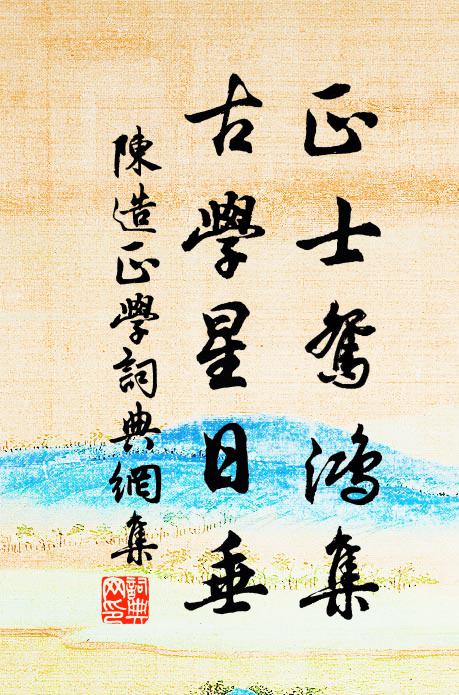 正士鴛鴻集
古學星日垂
陳造正學詞典網集
詞典
网印